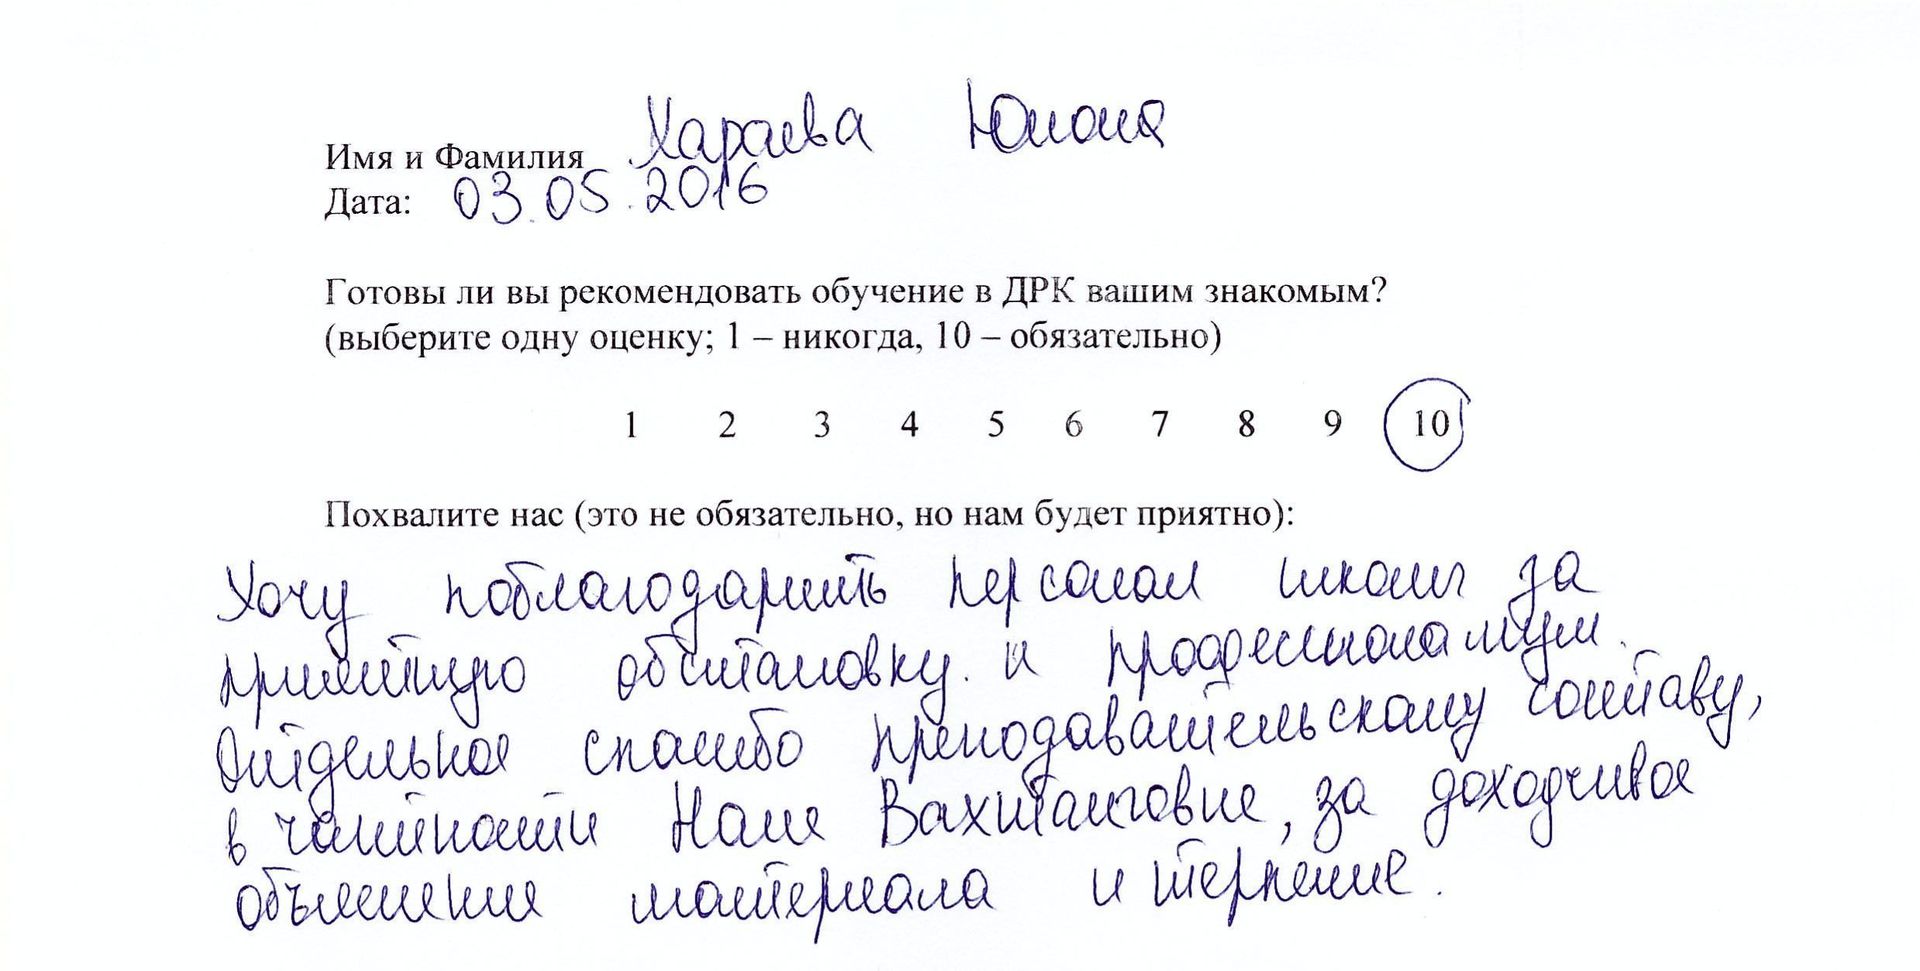 Имя и Фамилия Хараева Юлия
Дата: 03.05.2016
Готовы ли вы рекомендовать обучение в ДРК вашим знакомым?
(выберите одну оценку; 1 – никогда, 10 – обязательно)
1 2 3 4 5 6 7 8 9 10
Похвалите нас (это не обязательно, но нам будет приятно):
Хочу поблагодарить персонал школы за
приятную обстановку. и профессионализм.
Отдельное спасибо преподавательскому составу,
в частности Нане Вахтанговне, за доходчивое
объяснение материала и терпение.